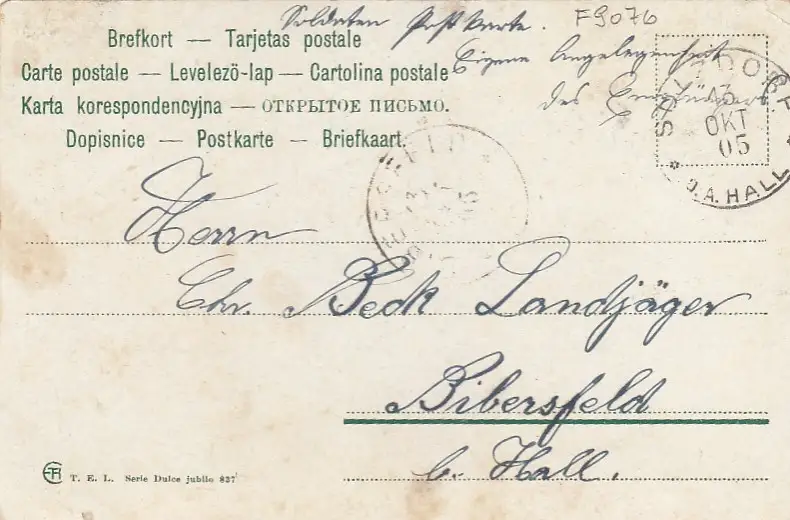 Soldaten Postkarte. F9076
Eigene Angelegenheit
des Empfängers
Brefkort — Tarjetas postale
Carte postale — Levelezö-lap — Cartolina postale
Karta korespondencyjna — ОТКРЫТОЕ ПИСЬМО.
Dopisnice — Postkarte — Briefkaart.
13
OKT
05
O.A. HALL
Herrn
Chr. Beck Landjäger
Bibersfeld
b. Hall.
T. E. L. Serie Dulce jubilo 837